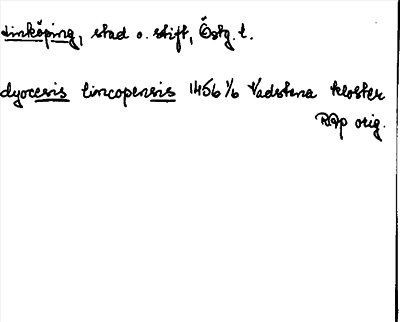 Linköping, stad o. stift, Östg. l.
dyocesis lincopensis 1456 1/6 Vadstena kloster
RAp orig.